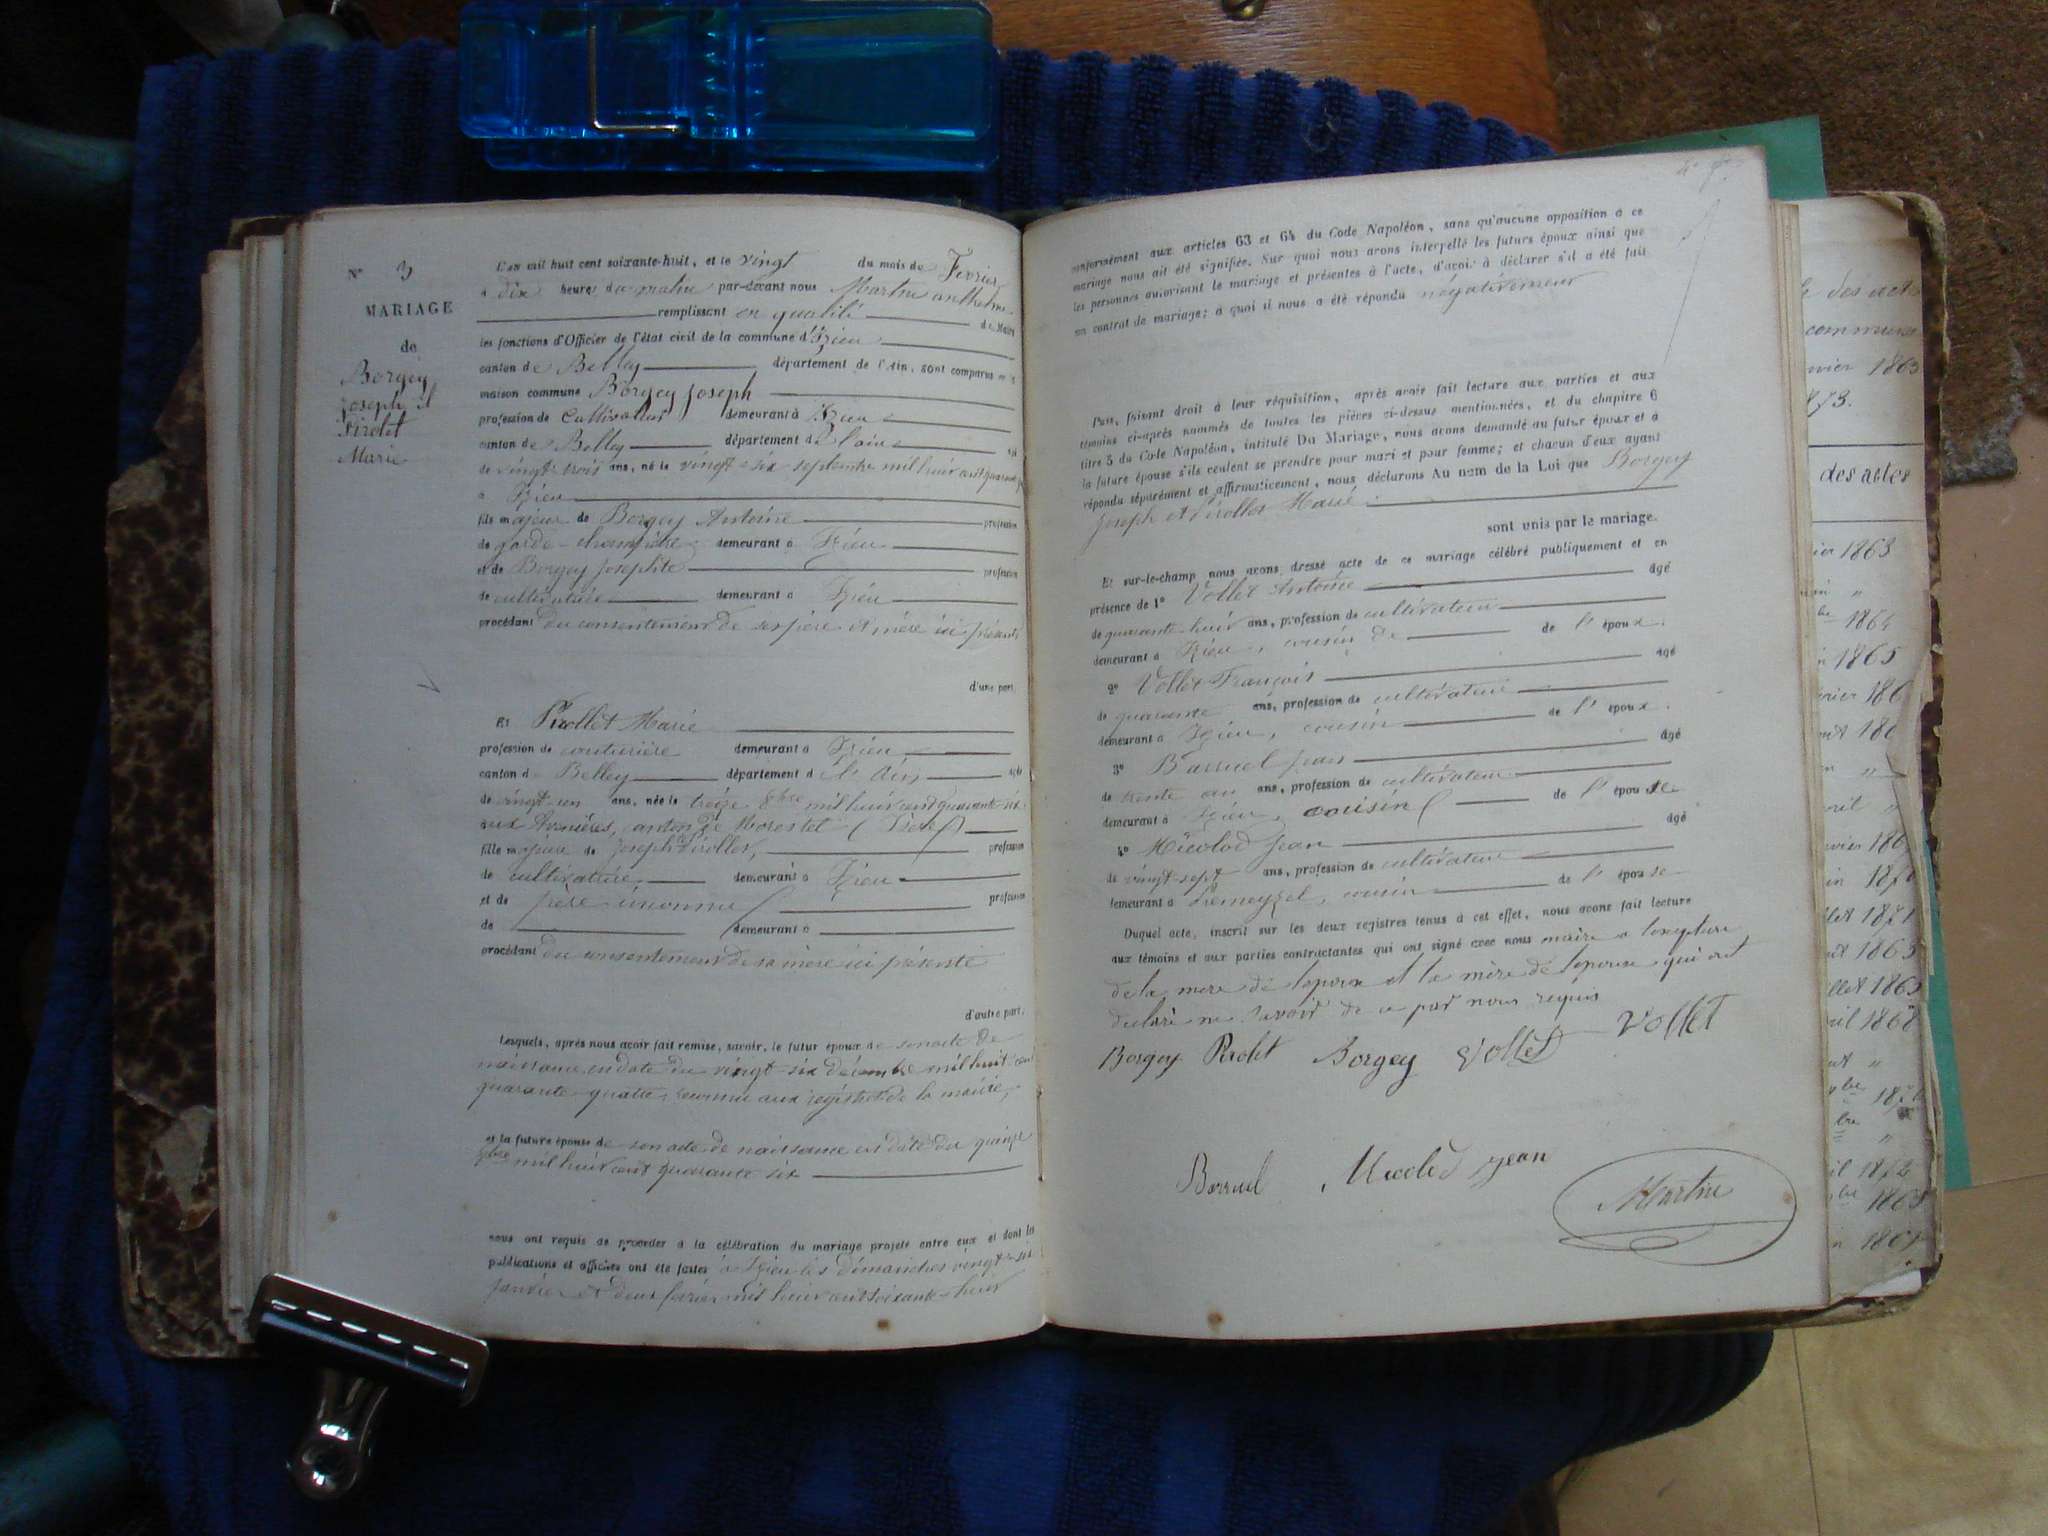 N° 3
MARIAGE
de
Borgey
Joseph et
Pirolet
Marie
L'an mil huit cent soixante-huit, et le vingt du mois de Fevrier
à dix heures du matin par-devant nous Martin anthelme
remplissant en qualité de Maire
les fonctions d'Officier de l'état civil de la commune d'Izieu
canton de Belley département de l'Ain, sont comparus en la
maison commune Borgey Joseph
profession de Cultivateur demeurant à Izieu
canton de Belley département de l'ain
de vingt trois ans, né le vingt-six septembre mil huit cent quarante
à Izieu
fils majeur de Borgey Antoine profession
de garde-champêtre demeurant à Izieu
et de Borgey Josephte profession
de cultivatrice demeurant à Izieu
procédant du consentement de ses père et mère ici présents
d'une part.
Et Pirollet Marie
profession de couturière demeurant à Izieu
canton de Belley département de l'Ain
de vingt-un ans, née le treize 8bre mil huit cent quarante six
aux Avenières, canton de Morestel (Isère)
fille majeure de Joseph Pirollet, profession
de cultivatrice demeurant à Izieu
et de père inconnu profession
de demeurant à
procédant du consentement de sa mère ici présente
d'autre part.
Lesquels, après nous avoir fait remise, savoir, le futur époux de son acte de
naissance en date du vingt-six décembre mil huit cent
quarante quatre, reconnu aux régistres de la mairie,
et la future épouse de son acte de naissance en date du quinze
8bre mil huit cent quarante six
nous ont requis de procéder à la célébration du mariage projeté entre eux et dont les
publications et affiches ont été faites à Izieu les dimanches vingt-six
janvier et deux février mil huit cent soixante-huit
conformément aux articles 63 et 64 du Code Napoléon, sans qu'aucune opposition à ce
mariage nous ait été signifiée. Sur quoi nous avons interpellé les futurs époux ainsi que
les personnes autorisant le mariage et présentes à l'acte, d'avoir à déclarer s'il a été fait
un contrat de mariage; à quoi il nous a été répondu négativement
Puis, faisant droit à leur réquisition, après avoir fait lecture aux parties et aux
témoins ci-après nommés de toutes les pièces ci-dessus mentionnées, et du chapitre 6
titre 5 du Code Napoléon, intitulé Du Mariage, nous avons demandé au futur époux et à
la future épouse s'ils veulent se prendre pour mari et pour femme; et chacun d'eux ayant
répondu séparément et affirmativement, nous déclarons Au nom de la Loi que Borgey
Joseph et Pirollet Marie
sont unis par le mariage.
Et sur-le-champ nous avons dressé acte de ce mariage célébré publiquement et en
présence de 1° Vollet Antoine âgé
de quarante huit ans, profession de cultivateur
demeurant à Izieu, cousin de de l'époux.
2° Vollet François âgé
de quarante ans, profession de cultivateur
demeurant à Izieu, cousin de l'époux.
3° Barruel Jean âgé
de trente un ans, profession de cultivateur
demeurant à Izieu, cousin de l'épouse
4° Nicolod Jean âgé
de vingt-sept ans, profession de cultivateur
demeurant à Prémeyzel, cousin de l'épouse
Duquel acte, inscrit sur les deux registres tenus à cet effet, nous avons fait lecture
aux témoins et aux parties contractantes qui ont signé avec nous maire a lexeption
de la mere de lepoux et la mère de lepouse qui ont
declaré ne savoir de ce par nous requis
Borgey Pirolet Borgey Vollet Vollet
Barruel Nicolod Jean
Martin
des acte
commune
1863
1873.
des actes
1863
1864
1865
1871
1863
1868